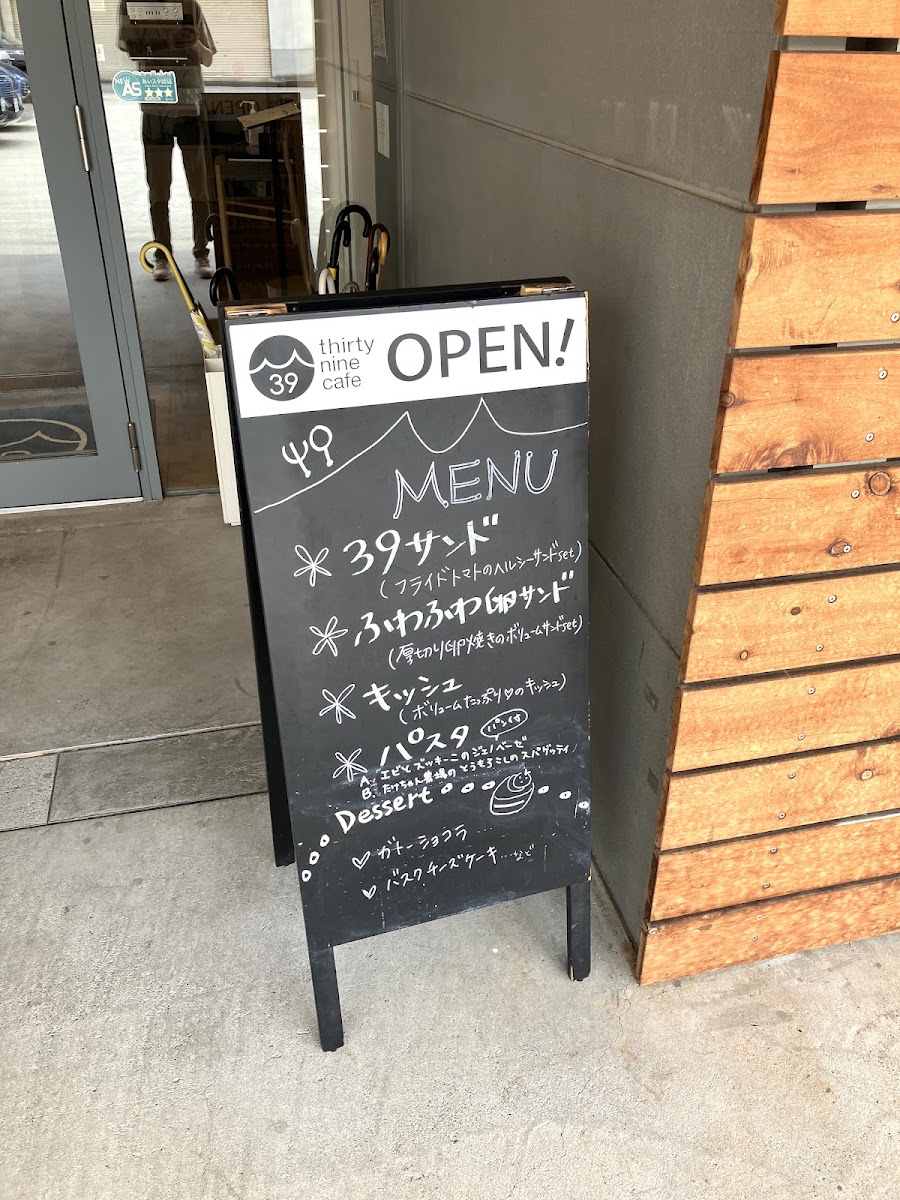 NEW AS あいスタ認証
★★★
39
thirty
nine
cafe
OPEN!
MENU
39サンド
(フライドトマトのヘルシーサンドset)
ふわふわ卵サンド
(厚切り卵焼きのボリュームサンドset)
キッシュ
(ボリュームたっぷり♡のキッシュ)
パスタ パン付
A: エビとズッキーニのジェノベーゼ
B: たけちゃん農場のとうもろこしのスパゲッティ
Dessert
♡ ガトーショコラ…
♡ バスクチーズケーキ…など